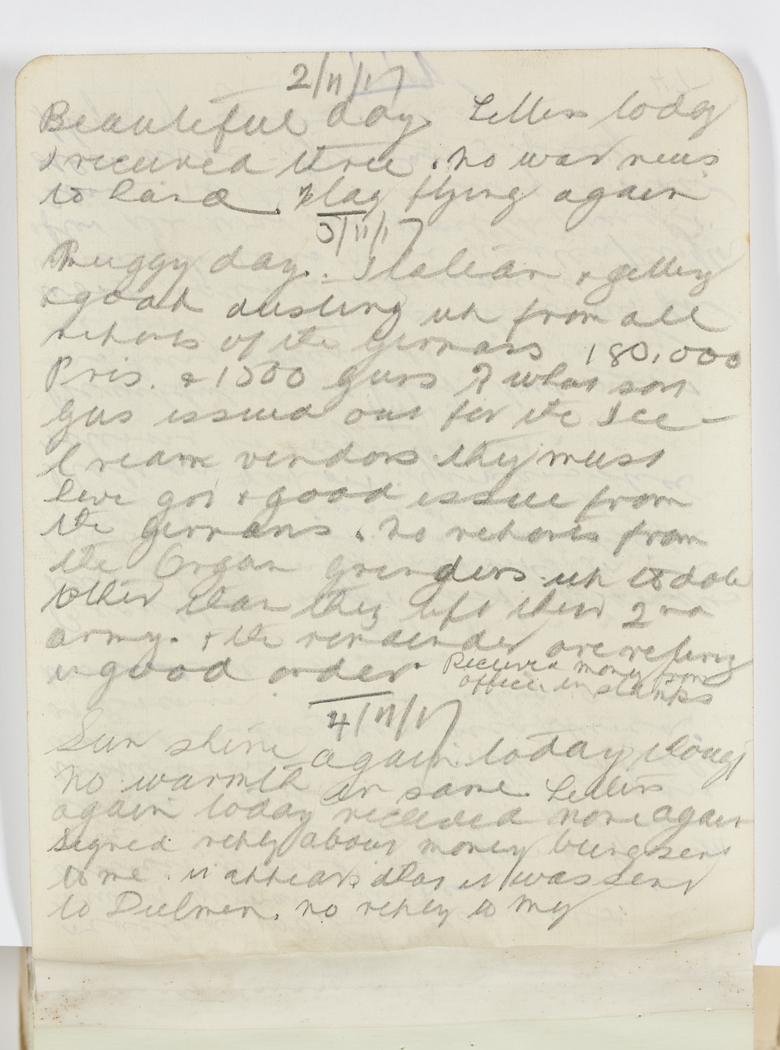 2/11/17
Beautiful day. Letters today
I received three. no war news
to hand. Flag flying again
3/11/17
Muggy day. Italian & getting
a good dusting up from all
reports of the germans 180,000
Pris. & 1500 guns ? what sort
Gus issued out for the Ice-
Cream vendors they must
have got a good issue from
the germans. no reports from
the Organ grinders up to date
other than they left their 2nd
army. & the remainder are retiring
in good order. Received money from
office in stamps
4/11/17
Sun shine again today though
no warmth in same. Letters
again today received none again
signed reply about money being sent
to me. it appears that it was sent
to Dulmen. no reply to my